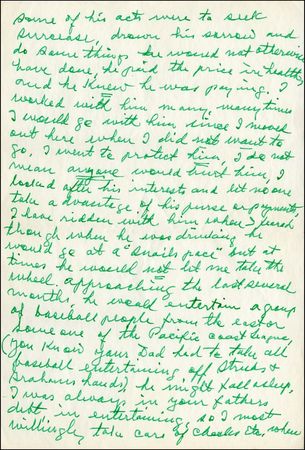 some of his acts were to seek
surcease, drown his sorrow and
do some things he would not otherwise
have done, he paid the price in health
and he knew he was paying. I
worked with him many, many times
I would go with him since I moved
out here when I did not want to
go. I went to protect him, I do not
mean anyone would hurt him, I
looked after his interests and let no one
take a advantage of his purse or payments
I have ridden with him when I feared
though when he was drinking he
would go at a "snails pace" but at
times he would not let me take the
wheel. approaching the last several
months he would entertain a group
of baseball people from the east or
some one of the Pacific Coast League,
(you know your Dad had to take all
baseball entertaining off
Grahams hands) he might fall asleep,
I was always in your fathers
debt in entertaining, so I most
willingly take care of Charles Etc, when